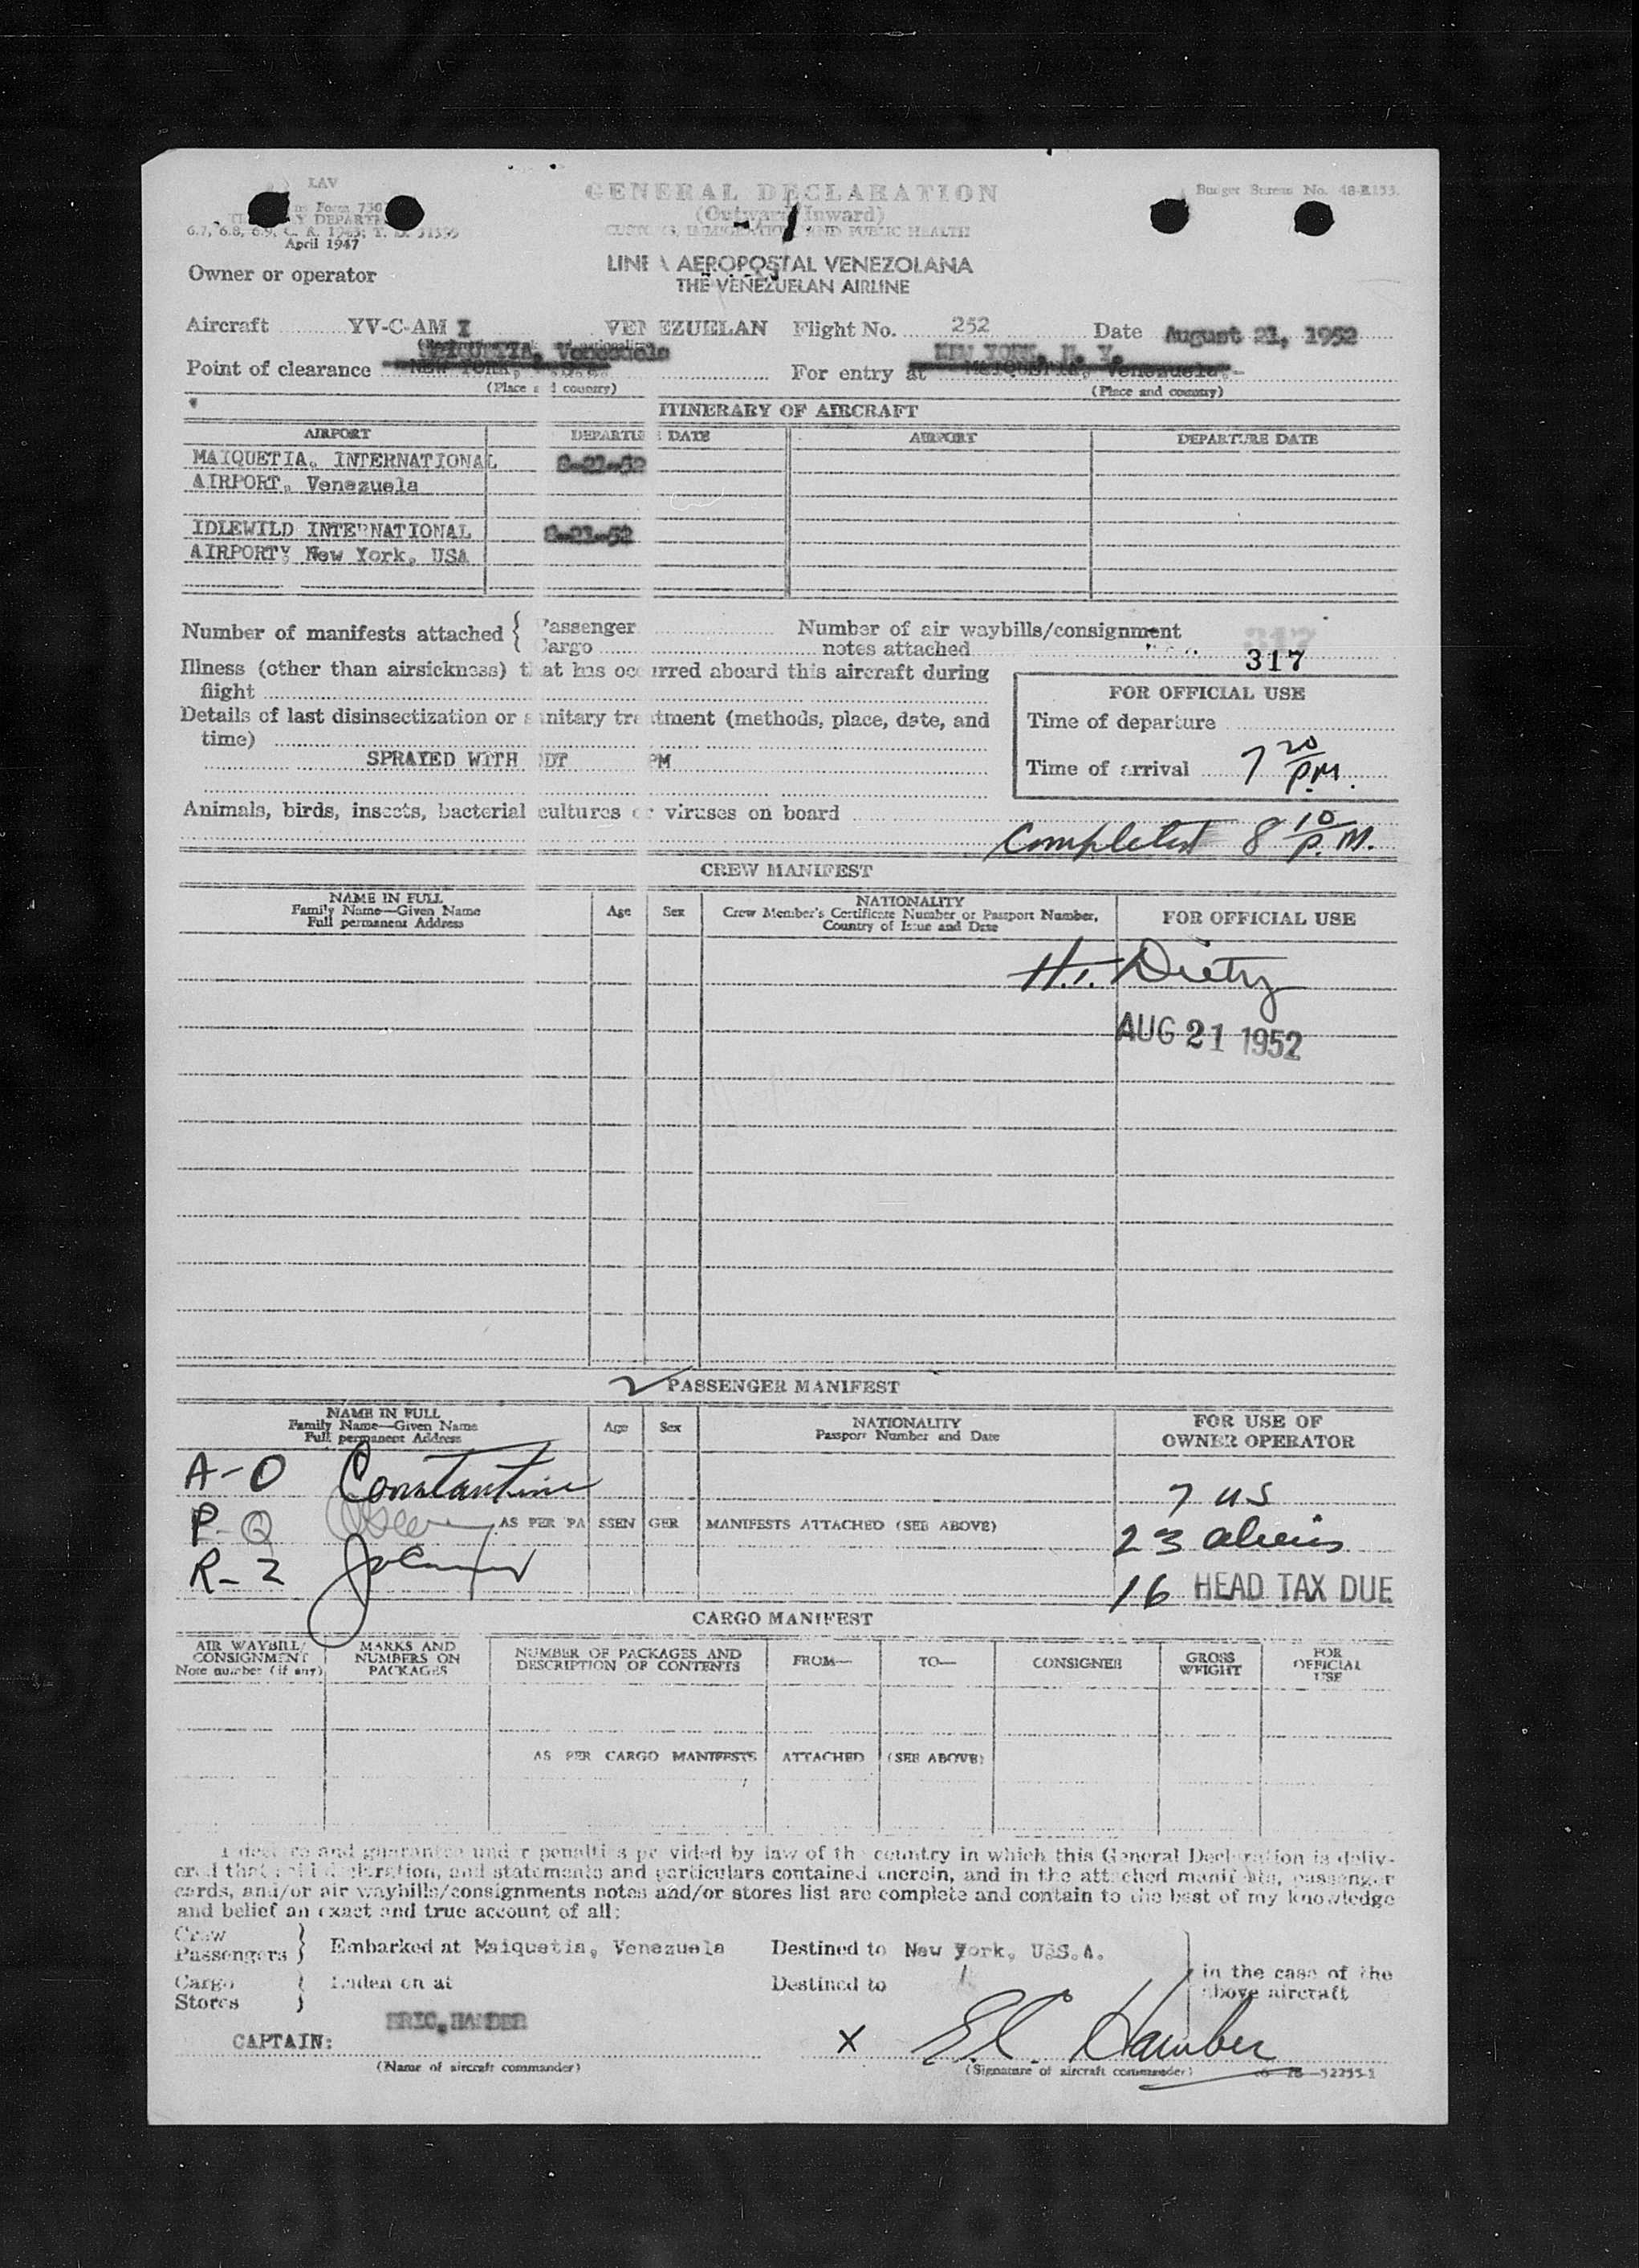 LAV
Form 7507
GENERAL DECLARATION
Budget Bureau No. 48-R153.
(Outward/Inward)
CUSTOMS, IMMIGRATION AND PUBLIC HEALTH
April 1947
LINEA AEROPOSTAL VENEZOLANA
THE VENEZUELAN AIRLINE
Owner or operator
Aircraft YV-C-AM VENEZUELAN Flight No. 252 Date August 21, 1952
MAIQUETIA, Venezuela NEW YORK, N. Y.
Point of clearance For entry at
(Place and country) (Place and country)
ITINERARY OF AIRCRAFT
AIRPORT DEPARTURE DATE AIRPORT DEPARTURE DATE
MAIQUETIA, INTERNATIONAL 8-21-52
AIRPORT, Venezuela
IDLEWILD INTERNATIONAL 8-21-52
AIRPORTY New York, USA
Number of manifests attached { Passenger Number of air waybills/consignment
Cargo notes attached 317
Illness (other than airsickness) that has occurred aboard this aircraft during
flight
FOR OFFICIAL USE
Details of last disinsectization or sanitary treatment (methods, place, date, and
time)
Time of departure
SPRAYED WITH DDT PM
Time of arrival 7 20 P.M.
Animals, birds, insects, bacterial cultures or viruses on board
Completed 8 10 P.M.
CREW MANIFEST
NAME IN FULL
Family Name—Given Name
Full permanent Address
Age
Sex
NATIONALITY
Crew Member's Certificate Number or Passport Number,
Country of Issue and Date
FOR OFFICIAL USE
H. Dietz
AUG 21 1952
PASSENGER MANIFEST
NAME IN FULL
Family Name—Given Name
Full permanent Address
Age
Sex
NATIONALITY
Passport Number and Date
FOR USE OF
OWNER OPERATOR
A-O Constantine 7 US
P-Q AS PER PASSENGER MANIFESTS ATTACHED (SEE ABOVE) 23 aliens
R-Z 16 HEAD TAX DUE
CARGO MANIFEST
AIR WAYBILL/
CONSIGNMENT
Note number (if any)
MARKS AND
NUMBERS ON
PACKAGES
NUMBER OF PACKAGES AND
DESCRIPTION OF CONTENTS
FROM—
TO—
CONSIGNEE
GROSS
WEIGHT
FOR
OFFICIAL
USE
AS PER CARGO MANIFESTS ATTACHED (SEE ABOVE)
I declare and guarantee under penalties provided by law of the country in which this General Declaration is deliv-
ered that said declaration, and statements and particulars contained therein, and in the attached manifests, passenger
cards, and/or air waybills/consignments notes and/or stores list are complete and contain to the best of my knowledge
and belief an exact and true account of all:
Crew
Passengers } Embarked at Maiquetia, Venezuela Destined to New York, U.S.A.
Cargo
Stores } Laden on at Destined to
in the case of the
above aircraft
CAPTAIN: ERIC. HAMBER X E.C. Hamber
(Name of aircraft commander) (Signature of aircraft commander) 52255-1